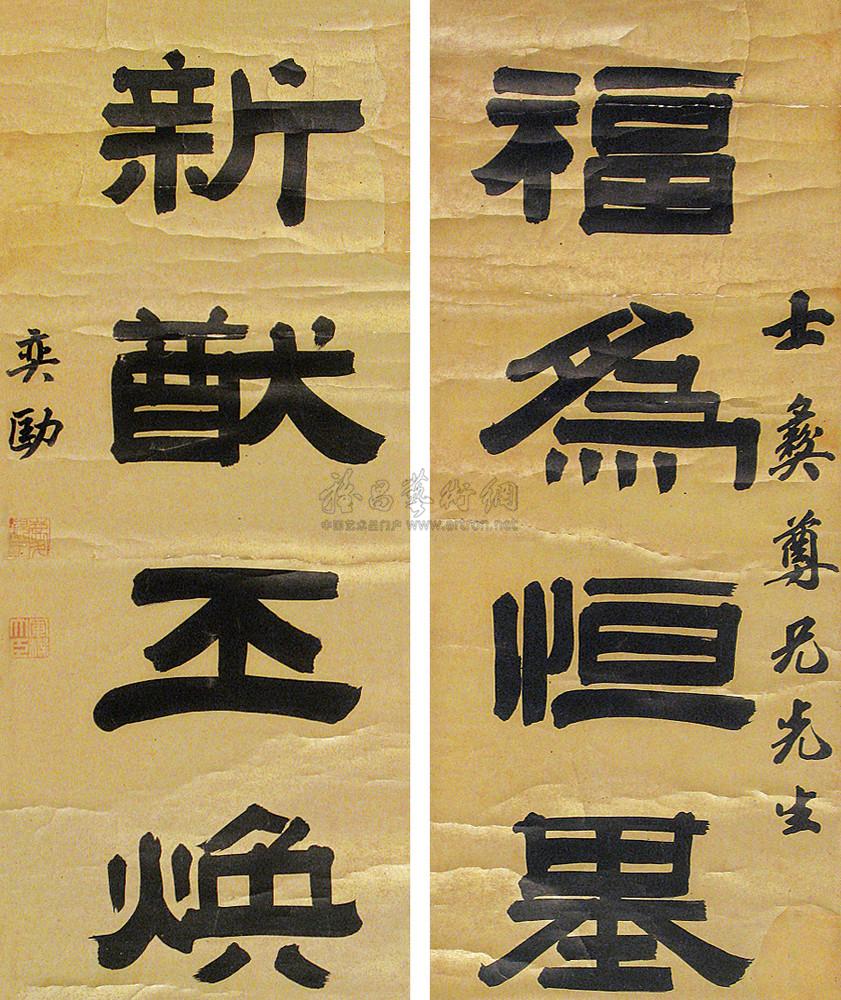 士彝尊兄先生
福為恒基
新猷丕煥
奕劻
雅昌藝術網
中国艺术品门户 www.artron.net